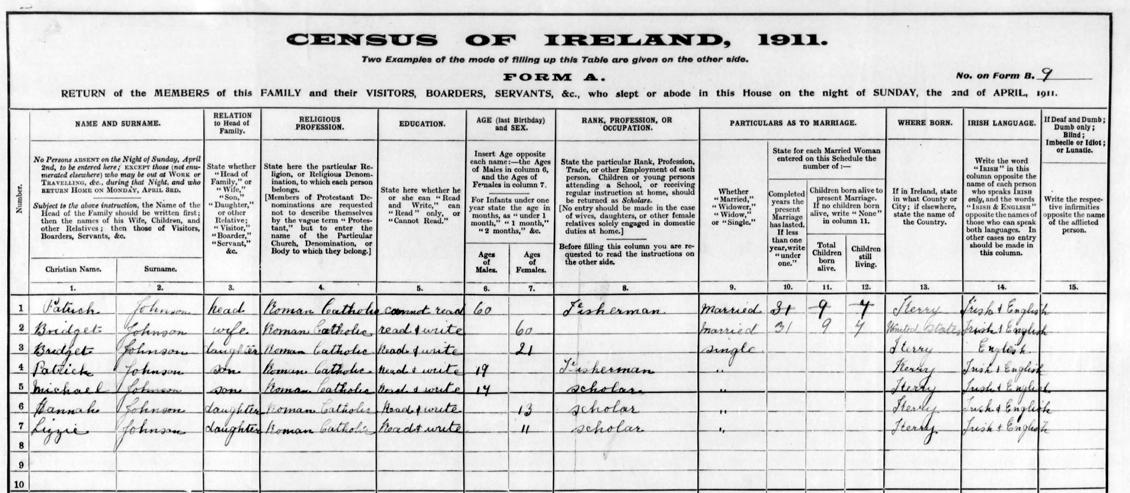 CENSUS OF IRELAND, 1911.
Two Examples of the mode of filling up this Table are given on the other side.
FORM A.
No. on Form B. 9
RETURN of the MEMBERS of this FAMILY and their VISITORS, BOARDERS, SERVANTS, &c., who slept or abode in this House on the night of SUNDAY, the 2nd of APRIL, 1911.
Number.
NAME AND SURNAME.
No Persons ABSENT on the Night of Sunday, April
2nd, to be entered here; EXCEPT those (not enu-
merated elsewhere) who may be out at WORK or
TRAVELLING, &c., during that Night, and who
RETURN HOME ON MONDAY, APRIL 3RD.
Subject to the above instruction, the Name of the
Head of the Family should be written first;
then the names of his Wife, Children, and
other Relatives; then those of Visitors,
Boarders, Servants, &c.
Christian Name.
Surname.
RELATION
to Head of
Family.
State whether
"Head of
Family," or
"Wife,"
"Son,"
"Daughter,"
or other
Relative;
"Visitor,"
"Boarder,"
"Servant,"
&c.
RELIGIOUS
PROFESSION.
State here the particular Re-
ligion, or Religious Denom-
ination, to which each person
belongs.
[Members of Protestant De-
nominations are requested
not to describe themselves
by the vague term "Protes-
tant," but to enter the
name of the Particular
Church, Denomination, or
Body to which they belong.]
EDUCATION.
State here whether he
or she can "Read
and Write," can
"Read" only, or
"Cannot Read."
AGE (last Birthday)
and SEX.
Insert Age opposite
each name:—the Ages
of Males in column 6,
and the Ages of
Females in column 7.
For Infants under one
year state the age in
months, as "under 1
month," "1 month,"
"2 months," &c.
Ages
of
Males.
Ages
of
Females.
RANK, PROFESSION, OR
OCCUPATION.
State the particular Rank, Profession,
Trade, or other Employment of each
person. Children or young persons
attending a School, or receiving
regular instruction at home, should
be returned as Scholars.
[No entry should be made in the case
of wives, daughters, or other female
relatives solely engaged in domestic
duties at home.]
Before filling this column you are re-
quested to read the instructions on
the other side.
PARTICULARS AS TO MARRIAGE.
Whether
"Married,"
"Widower,"
"Widow,"
or "Single."
State for each Married Woman
entered on this Schedule the
number of:—
Completed
years the
present
Marriage
has lasted.
If less
than one
year, write
"under
one."
Children born alive to
present Marriage.
If no children born
alive, write "None"
in column 11.
Total
Children
born
alive.
Children
still
living.
WHERE BORN.
If in Ireland, state
in what County or
City; if elsewhere,
state the name of
the Country.
IRISH LANGUAGE.
Write the word
"IRISH" in this
column opposite the
name of each person
who speaks IRISH
only, and the words
"IRISH & ENGLISH"
opposite the names of
those who can speak
both languages. In
other cases no entry
should be made in
this column.
If Deaf and Dumb;
Dumb only;
Blind;
Imbecile or Idiot;
or Lunatic.
Write the respec-
tive infirmities
opposite the name
of the afflicted
person.
1. 2. 3. 4. 5. 6. 7. 8. 9. 10. 11. 12. 13. 14. 15.
1 Patrick Johnson head Roman Catholic cannot read 60 Fisherman Married 31 9 7 Kerry Irish & English
2 Bridget Johnson wife Roman Catholic read & write 60 Married 31 9 7 United States Irish & English
3 Bridget Johnson daughter Roman Catholic Read & write 21 single Kerry English
4 Patrick Johnson son Roman Catholic Read & write 19 Fisherman " Kerry Irish & English
5 Michael Johnson son Roman Catholic Read & write 17 scholar " Kerry Irish & English
6 Hannah Johnson daughter Roman Catholic Read & write 13 scholar " Kerry Irish & English
7 Lizzie Johnson daughter Roman Catholic Read & write 11 scholar " Kerry Irish & English
8
9
10